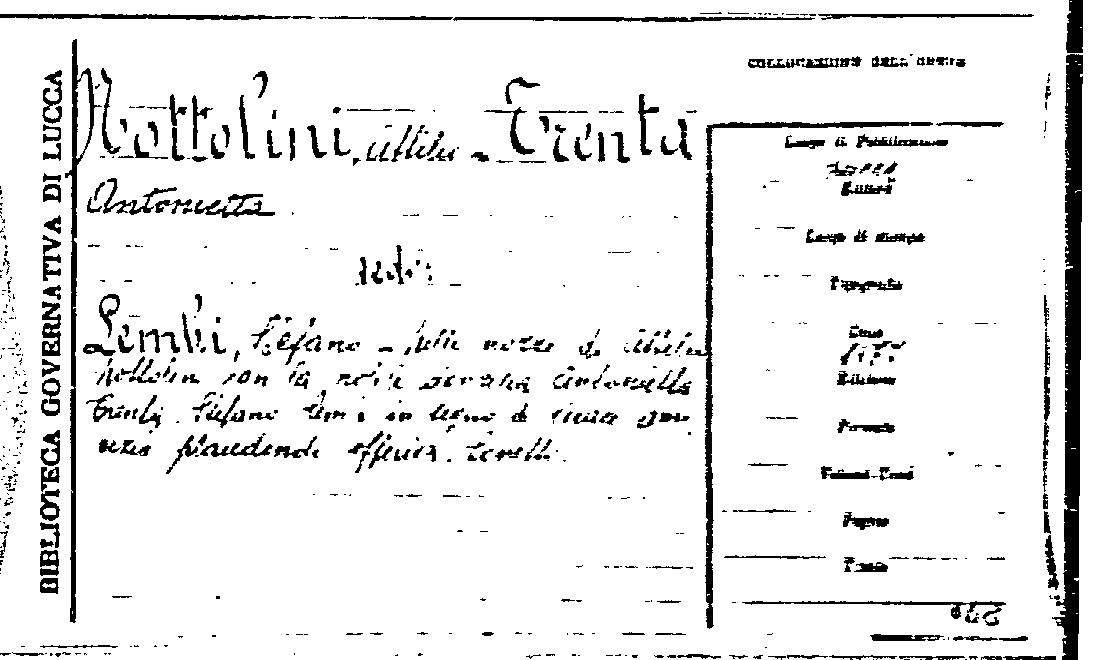 BIBLIOTECA GOVERNATIVA DI LUCCA
COLLOCAZIONE DELL'OPERA
Nottolini, Attilio - Trenta
Antonietta
vedi:
Lembi, Stefano - Nelle nozze di Attilio
Nottolini con la nobil donzella Antonietta
Trenta Stefano Lembi in segno di
plaudendo offeriva.
Luogo di Pubblicazione
Lucca
Editore
Luogo di stampa
Tipografia
Data
Edizione
Formato
Volumi-Tomi
Pagine
Tavole